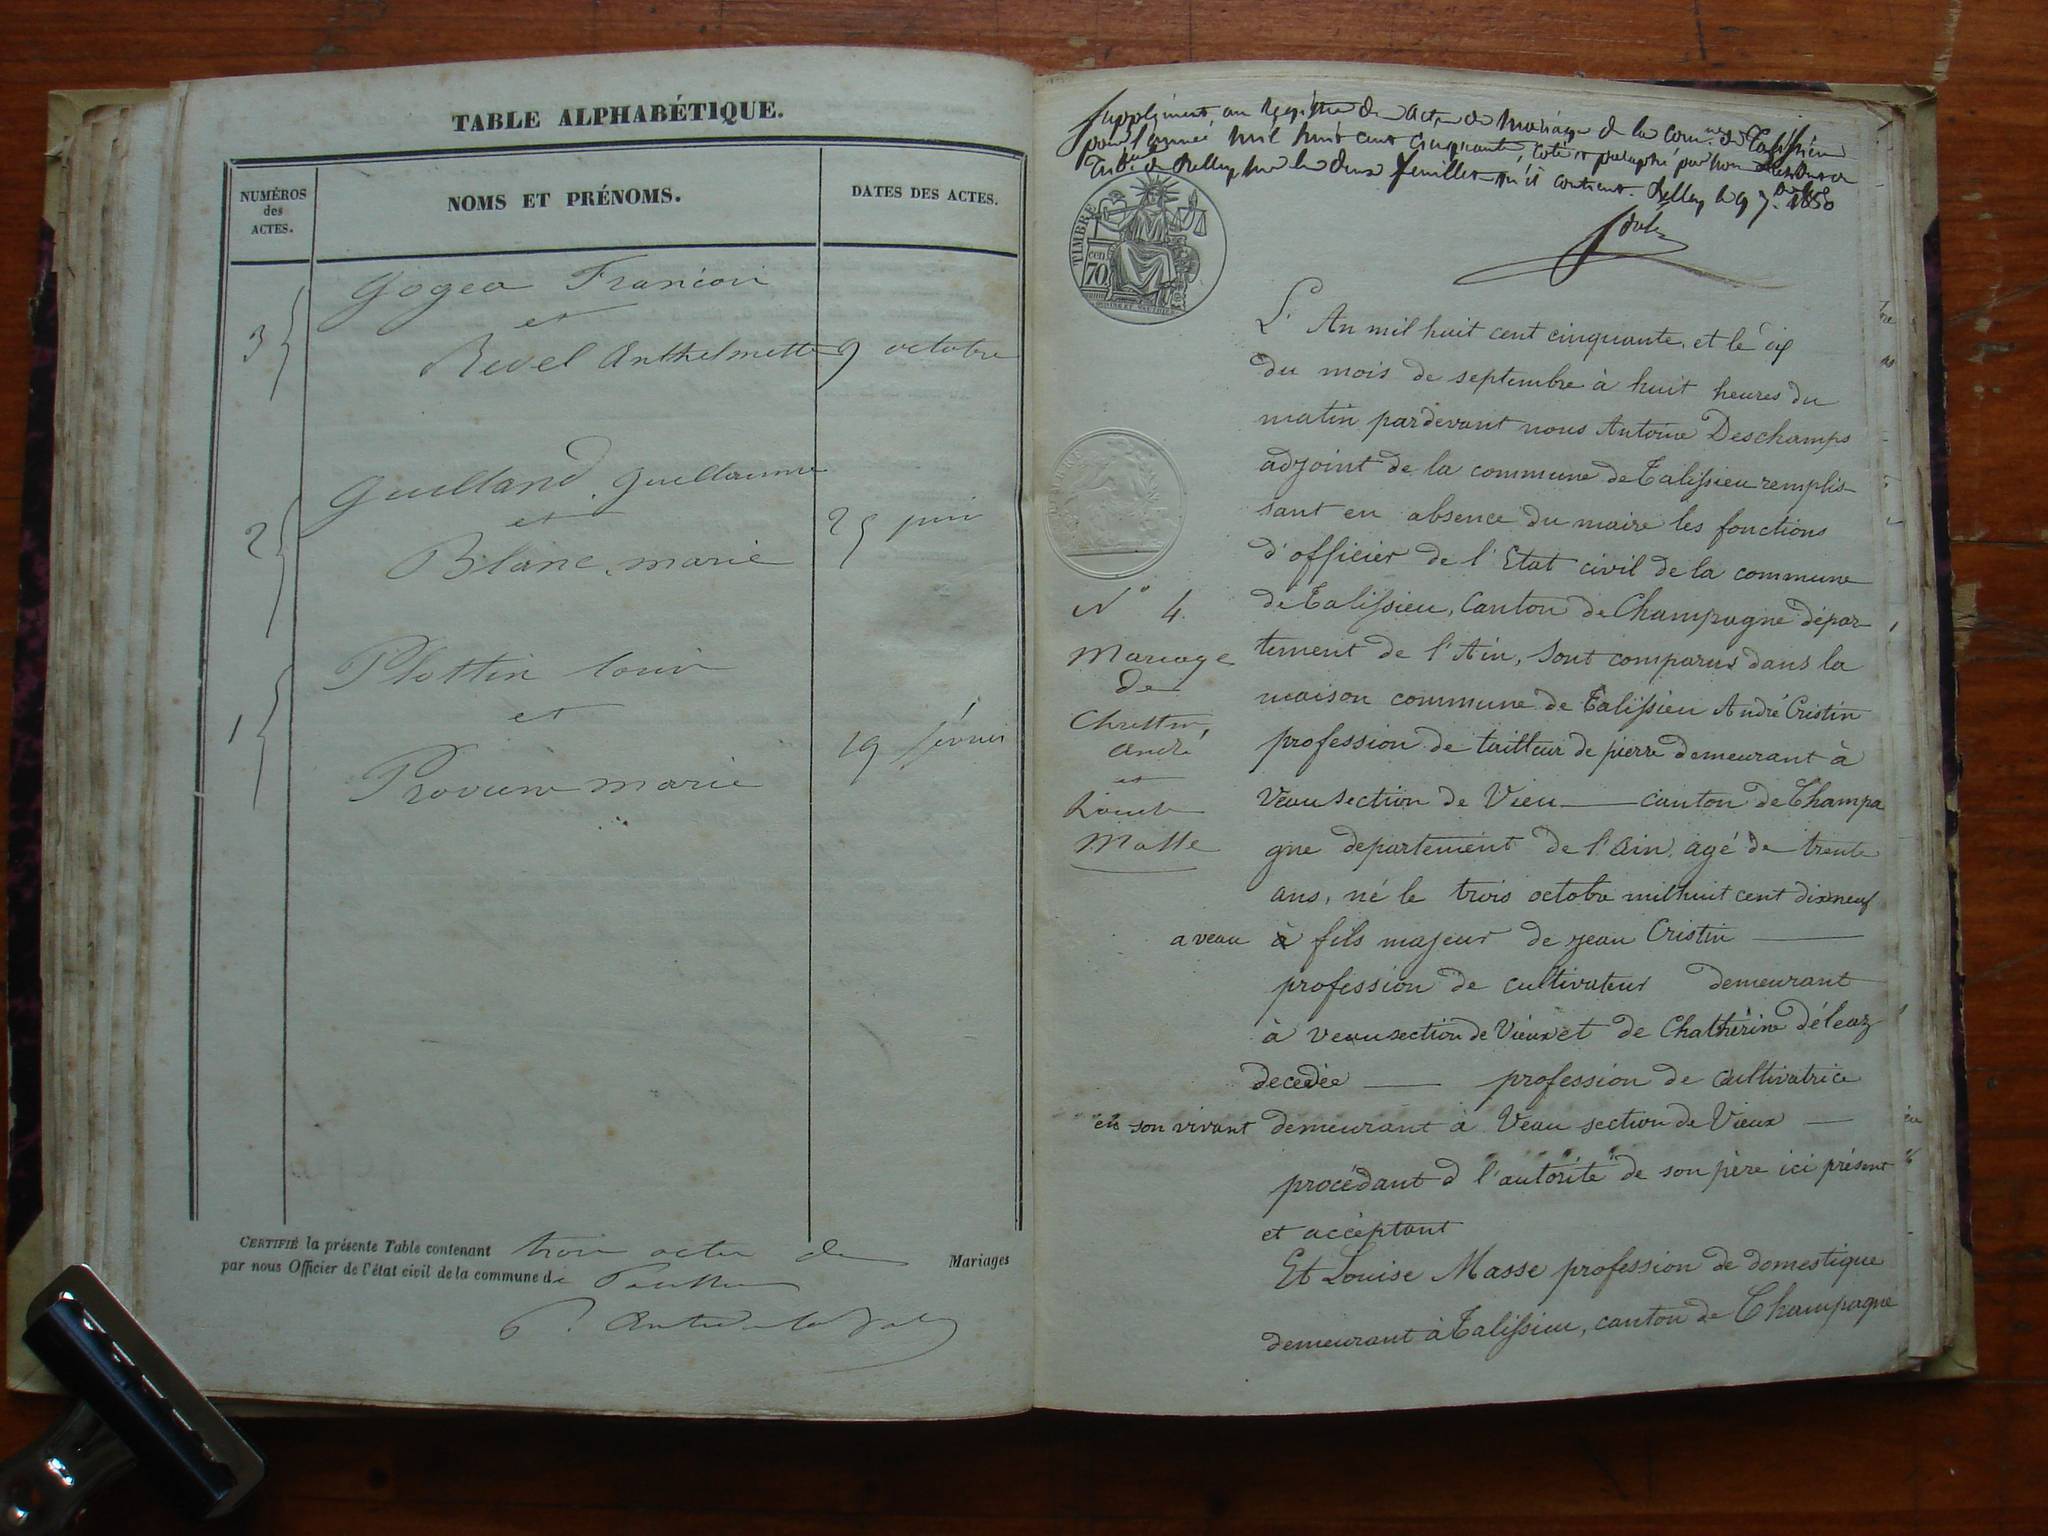 TABLE ALPHABÉTIQUE.
NUMÉROS
des
ACTES.
NOMS ET PRÉNOMS.
DATES DES ACTES.
Gogea
et
3
Revel Anthelmette 9 octobre
Guilland, Guillaume
et
2
25 juin
Blanc, marie
Plottin Louis
et
1
19 février
marie
CERTIFIÉ la présente Table contenant trois actes de Mariages
par nous Officier de l'état civil de la commune de
Supplément au registre des actes de mariage de la com.ne de Talissieu
pour l'année mil huit cent cinquante, coté et paraphé par nous
de Belley, sur les deux feuilles qu'il contient. Belley le 9 7.bre 1850
TIMBRE
cen
70
L'An mil huit cent cinquante, et le dix
du mois de septembre à huit heures du
matin pardevant nous Antoine Deschamps
adjoint de la commune de Talissieu remplis-
sant en absence du maire les fonctions
d'officier de l'Etat civil de la commune
de Talissieu, Canton de Champagne dépar-
tement de l'Ain, sont comparus dans la
maison commune de Talissieu André Cristin
profession de tailleur de pierre demeurant à
Veau section de Vieu — canton de Champa
gne departement de l'Ain, agé de trente
ans, né le trois octobre mil huit cent dix neuf
a veau à fils majeur de jean Cristin —
profession de cultivateur demeurant
à veau section de Vieux et de Chathérine déléaz
decedée — profession de cultivatrice
en son vivant demeurant à Veau section de Vieux —
procédant d l'autorité de son père ici présent
et accéptant
Et Louise Masse profession de domestique
demeurant à Talissieu, canton de Champagne
N° 4.
Mariage
de
andré
et
Masse